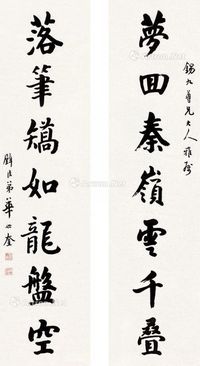 錫九尊兄大人雅屬
夢回秦嶺雲千叠
落筆矯如龍盤空
璧臣弟華世奎